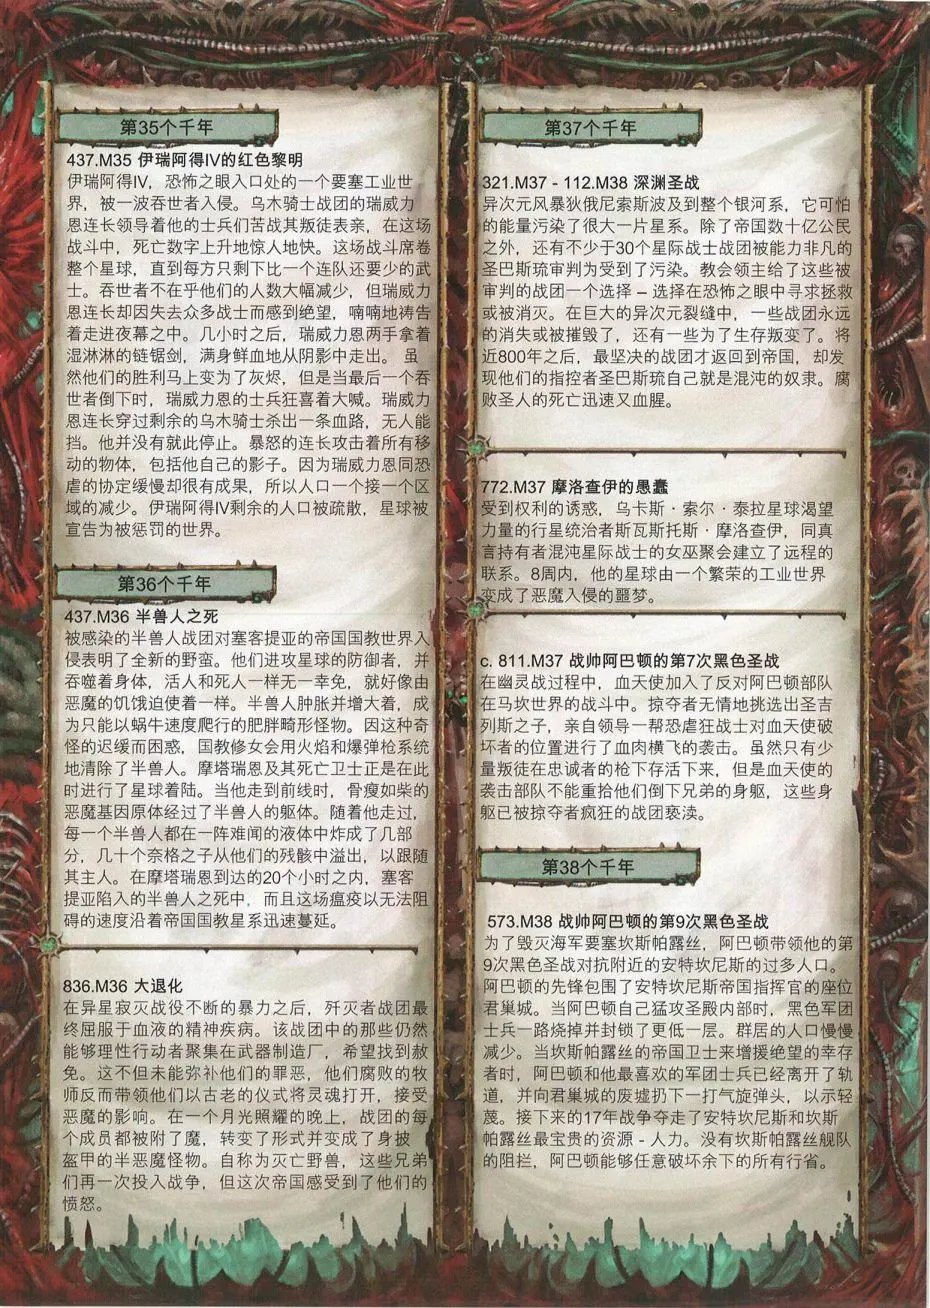 第35个千年
437.M35 伊瑞阿得IV的红色黎明
伊瑞阿得IV，恐怖之眼入口处的一个要塞工业世
界，被一波吞世者入侵。乌木骑士战团的瑞威力
恩连长领导着他的士兵们苦战其叛徒表亲，在这场
战斗中，死亡数字上升地惊人地快。这场战斗席卷
整个星球，直到每方只剩下比一个连队还要少的武
士。吞世者不在乎他们的人数大幅减少，但瑞威力
恩连长却因失去众多战士而感到绝望，喃喃地祷告
着走进夜幕之中。几小时之后，瑞威力恩两手拿着
湿淋淋的链锯剑，满身鲜血地从阴影中走出。 虽
然他们的胜利马上变为了灰烬，但是当最后一个吞
世者倒下时，瑞威力恩的士兵狂喜着大喊。瑞威力
恩连长穿过剩余的乌木骑士杀出一条血路，无人能
挡。他并没有就此停止。暴怒的连长攻击着所有移
动的物体，包括他自己的影子。因为瑞威力恩同恐
虐的协定缓慢却很有成果，所以人口一个接一个区
域的减少。伊瑞阿得IV剩余的人口被疏散，星球被
宣告为被惩罚的世界。
第36个千年
437.M36 半兽人之死
被感染的半兽人战团对塞客提亚的帝国国教世界入
侵表明了全新的野蛮。他们进攻星球的防御者，并
吞噬着身体，活人和死人一样无一幸免，就好像由
恶魔的饥饿迫使着一样。半兽人肿胀并增大着，成
为只能以蜗牛速度爬行的肥胖畸形怪物。因这种奇
怪的迟缓而困惑，国教修女会用火焰和爆弹枪系统
地清除了半兽人。摩塔瑞恩及其死亡卫士正是在此
时进行了星球着陆。当他走到前线时，骨瘦如柴的
恶魔基因原体经过了半兽人的躯体。随着他走过，
每一个半兽人都在一阵难闻的液体中炸成了几部
分，几十个奈格之子从他们的残骸中溢出，以跟随
其主人。在摩塔瑞恩到达的20个小时之内，塞客
提亚陷入的半兽人之死中，而且这场瘟疫以无法阻
碍的速度沿着帝国国教星系迅速蔓延。
836.M36 大退化
在异星寂灭战役不断的暴力之后，歼灭者战团最
终屈服于血液的精神疾病。该战团中的那些仍然
能够理性行动者聚集在武器制造厂，希望找到赦
免。这不但未能弥补他们的罪恶，他们腐败的牧
师反而带领他们以古老的仪式将灵魂打开，接受
恶魔的影响。在一个月光照耀的晚上，战团的每
个成员都被附了魔，转变了形式并变成了身披
盔甲的半恶魔怪物。自称为灭亡野兽，这些兄弟
们再一次投入战争，但这次帝国感受到了他们的
愤怒。
第37个千年
321.M37 - 112.M38 深渊圣战
异次元风暴狄俄尼索斯波及到整个银河系，它可怕
的能量污染了很大一片星系。除了帝国数十亿公民
之外，还有不少于30个星际战士战团被能力非凡的
圣巴斯琉审判为受到了污染。教会领主给了这些被
审判的战团一个选择 – 选择在恐怖之眼中寻求拯救
或被消灭。在巨大的异次元裂缝中，一些战团永远
的消失或被摧毁了，还有一些为了生存叛变了。将
近800年之后，最坚决的战团才返回到帝国，却发
现他们的指控者圣巴斯琉自己就是混沌的奴隶。腐
败圣人的死亡迅速又血腥。
772.M37 摩洛查伊的愚蠢
受到权利的诱惑，乌卡斯·索尔·泰拉星球渴望
力量的行星统治者斯瓦斯托斯·摩洛查伊，同真
言持有者混沌星际战士的女巫聚会建立了远程的
联系。8周内，他的星球由一个繁荣的工业世界
变成了恶魔入侵的噩梦。
c. 811.M37 战帅阿巴顿的第7次黑色圣战
在幽灵战过程中，血天使加入了反对阿巴顿部队
在马坎世界的战斗中。掠夺者无情地挑选出圣吉
列斯之子，亲自领导一帮恐虐狂战士对血天使破
坏者的位置进行了血肉横飞的袭击。虽然只有少
量叛徒在忠诚者的枪下存活下来，但是血天使的
袭击部队不能重拾他们倒下兄弟的身躯，这些身
躯已被掠夺者疯狂的战团亵渎。
第38个千年
573.M38 战帅阿巴顿的第9次黑色圣战
为了毁灭海军要塞坎斯帕露丝，阿巴顿带领他的第
9次黑色圣战对抗附近的安特坎尼斯的过多人口。
阿巴顿的先锋包围了安特坎尼斯帝国指挥官的座位
君巢城。当阿巴顿自己猛攻圣殿内部时，黑色军团
士兵一路烧掉并封锁了更低一层。群居的人口慢慢
减少。当坎斯帕露丝的帝国卫士来增援绝望的幸存
者时，阿巴顿和他最喜欢的军团士兵已经离开了轨
道，并向君巢城的废墟扔下一打气旋弹头，以示轻
蔑。接下来的17年战争夺走了安特坎尼斯和坎斯
帕露丝最宝贵的资源 - 人力。没有坎斯帕露丝舰队
的阻拦，阿巴顿能够任意破坏余下的所有行省。